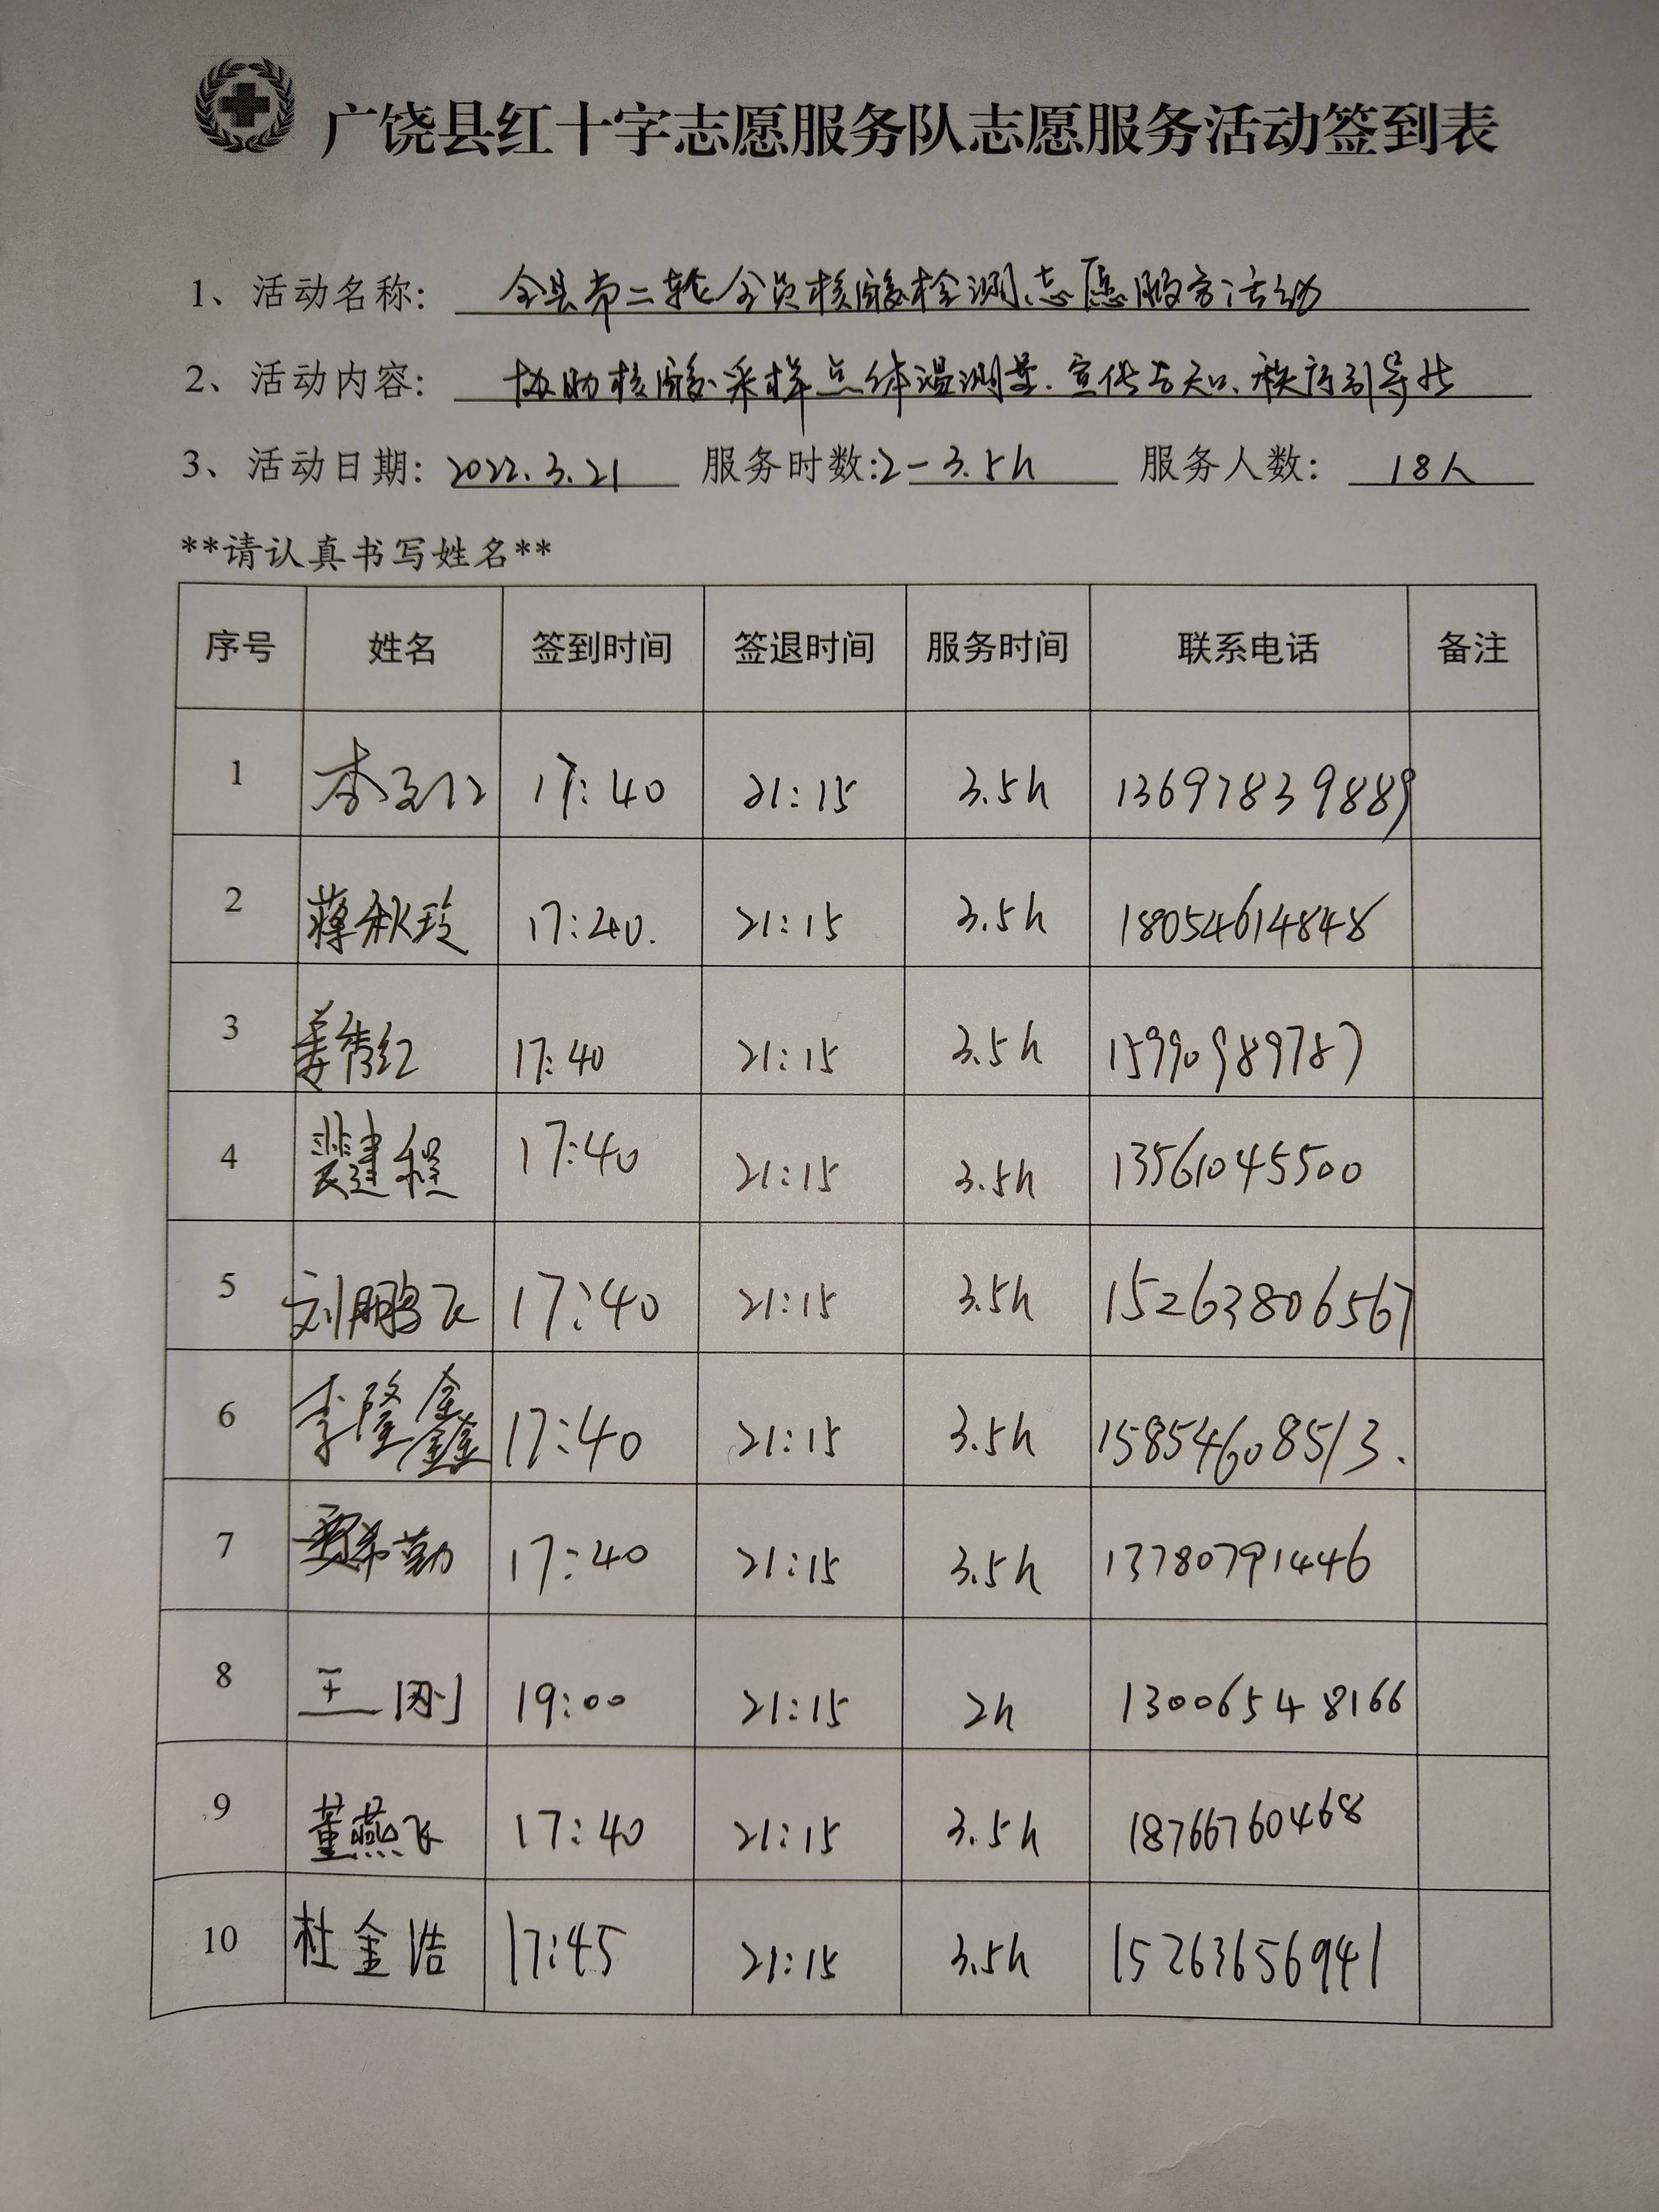 广饶县红十字志愿服务队志愿服务活动签到表
1、活动名称: 全县第二轮全员核酸检测志愿服务活动
2、活动内容: 协助核酸采样点体温测量、宣传告知、秩序引导等
3、活动日期: 2022.3.21 服务时数:2-3.5h 服务人数: 18人
**请认真书写姓名**
序号 姓名 签到时间 签退时间 服务时间 联系电话 备注
1 17:40 21:15 3.5h 13697839889
2 蒋秋玲 17:40. 21:15 3.5h 18054614848
3 17:40 21:15 3.5h 15990989787
4 裴建程 17:40 21:15 3.5h 13561045500
5 刘鹏飞 17:40 21:15 3.5h 15263806567
6 李隆鑫 17:40 21:15 3.5h 15854608513.
7 17:40 21:15 3.5h 13780791446
8 王刚 19:00 21:15 2h 13006548166
9 董燕飞 17:40 21:15 3.5h 18766760468
10 杜金浩 17:45 21:15 3.5h 15263656941